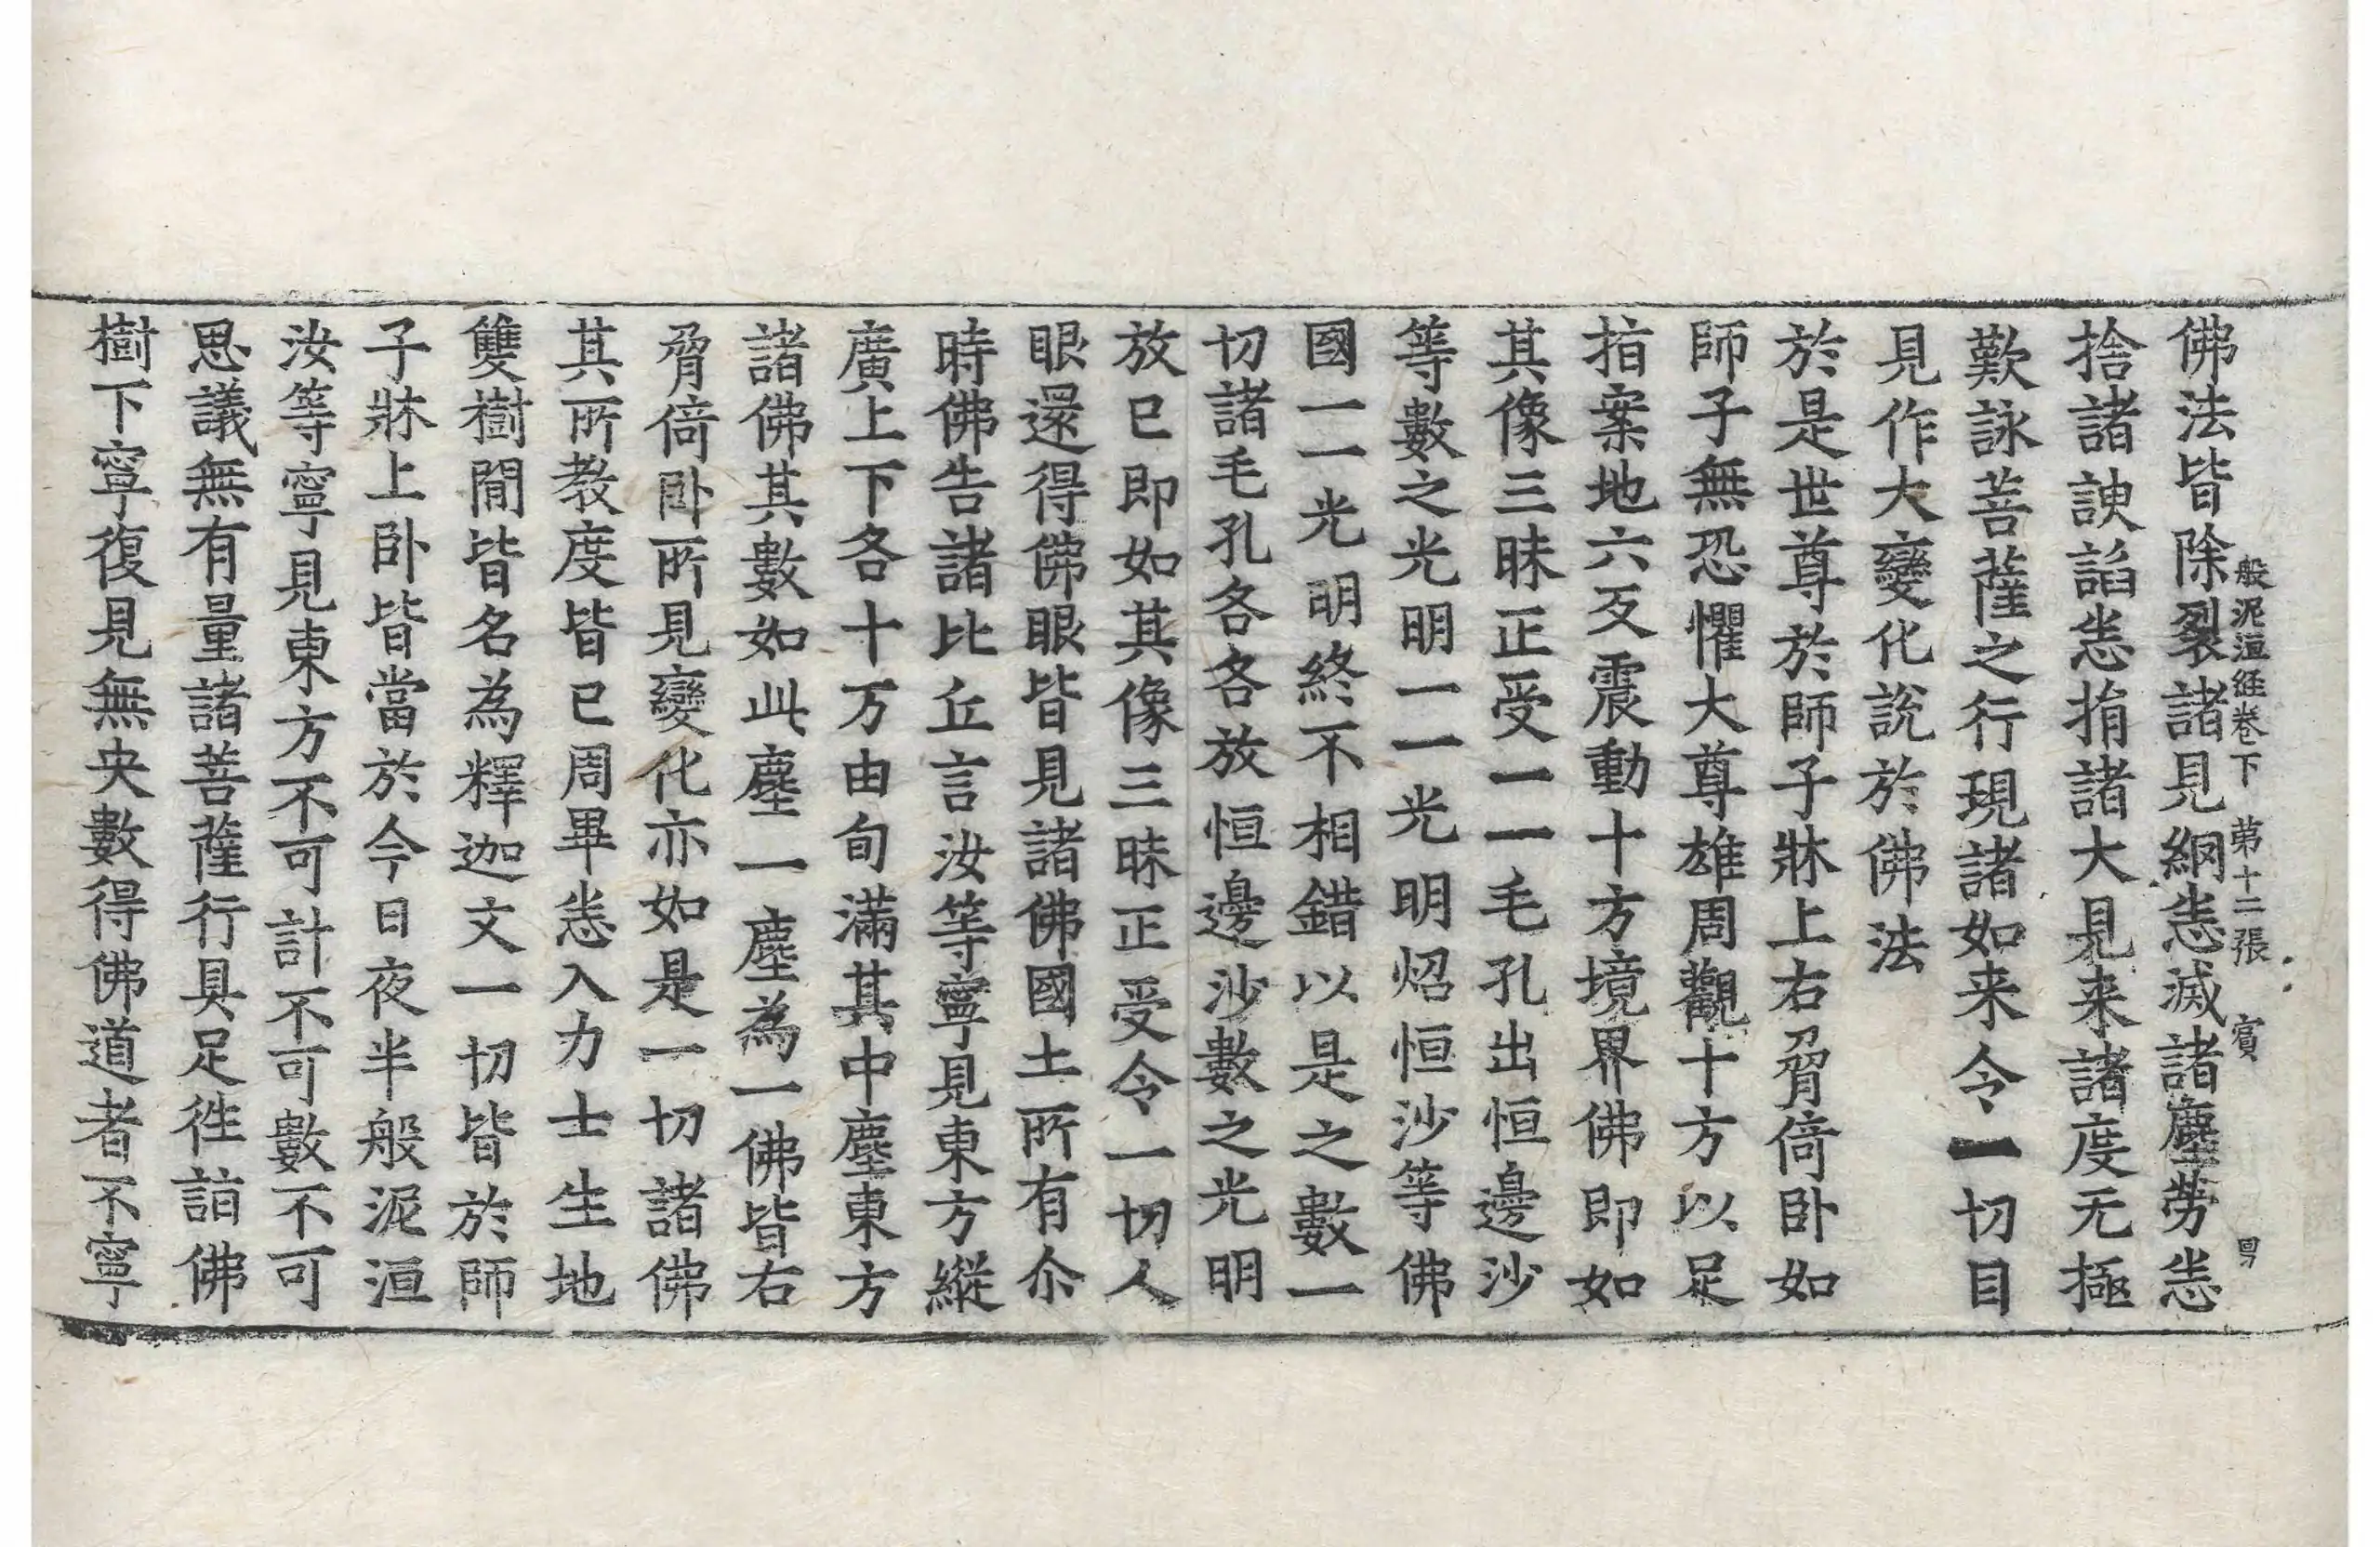 般泥洹経卷下 第十二張 賓
佛法皆除裂諸見網悉滅諸塵勞悉
捨諸諛諂悉捐諸大見来諸度无極
歎詠菩薩之行現諸如来令一切目
見作大變化說於佛法
於是世尊於師子牀上右脅倚卧如
師子無恐懼大尊雄周觀十方以足
指案地六反震動十方境界佛即如
其像三昧正受一一毛孔出恒邊沙
等數之光明一一光明炤恒沙等佛
國一一光明終不相錯以是之數一
切諸毛孔各各放恒邊沙數之光明
放已即如其像三昧正受令一切人
眼還得佛眼皆見諸佛國土所有尒
時佛告諸比丘言汝等寧見東方縱
廣上下各十万由旬滿其中塵東方
諸佛其數如此塵一塵為一佛皆右
脅倚卧所見變化亦如是一切諸佛
其所教度皆已周畢悉入力士生地
雙樹閒皆名為釋迦文一切皆於師
子牀上卧皆當於今日夜半般泥洹
汝等寧見東方不可計不可數不可
思議無有量諸菩薩行具足徃詣佛
樹下寧復見無央數得佛道者不寧